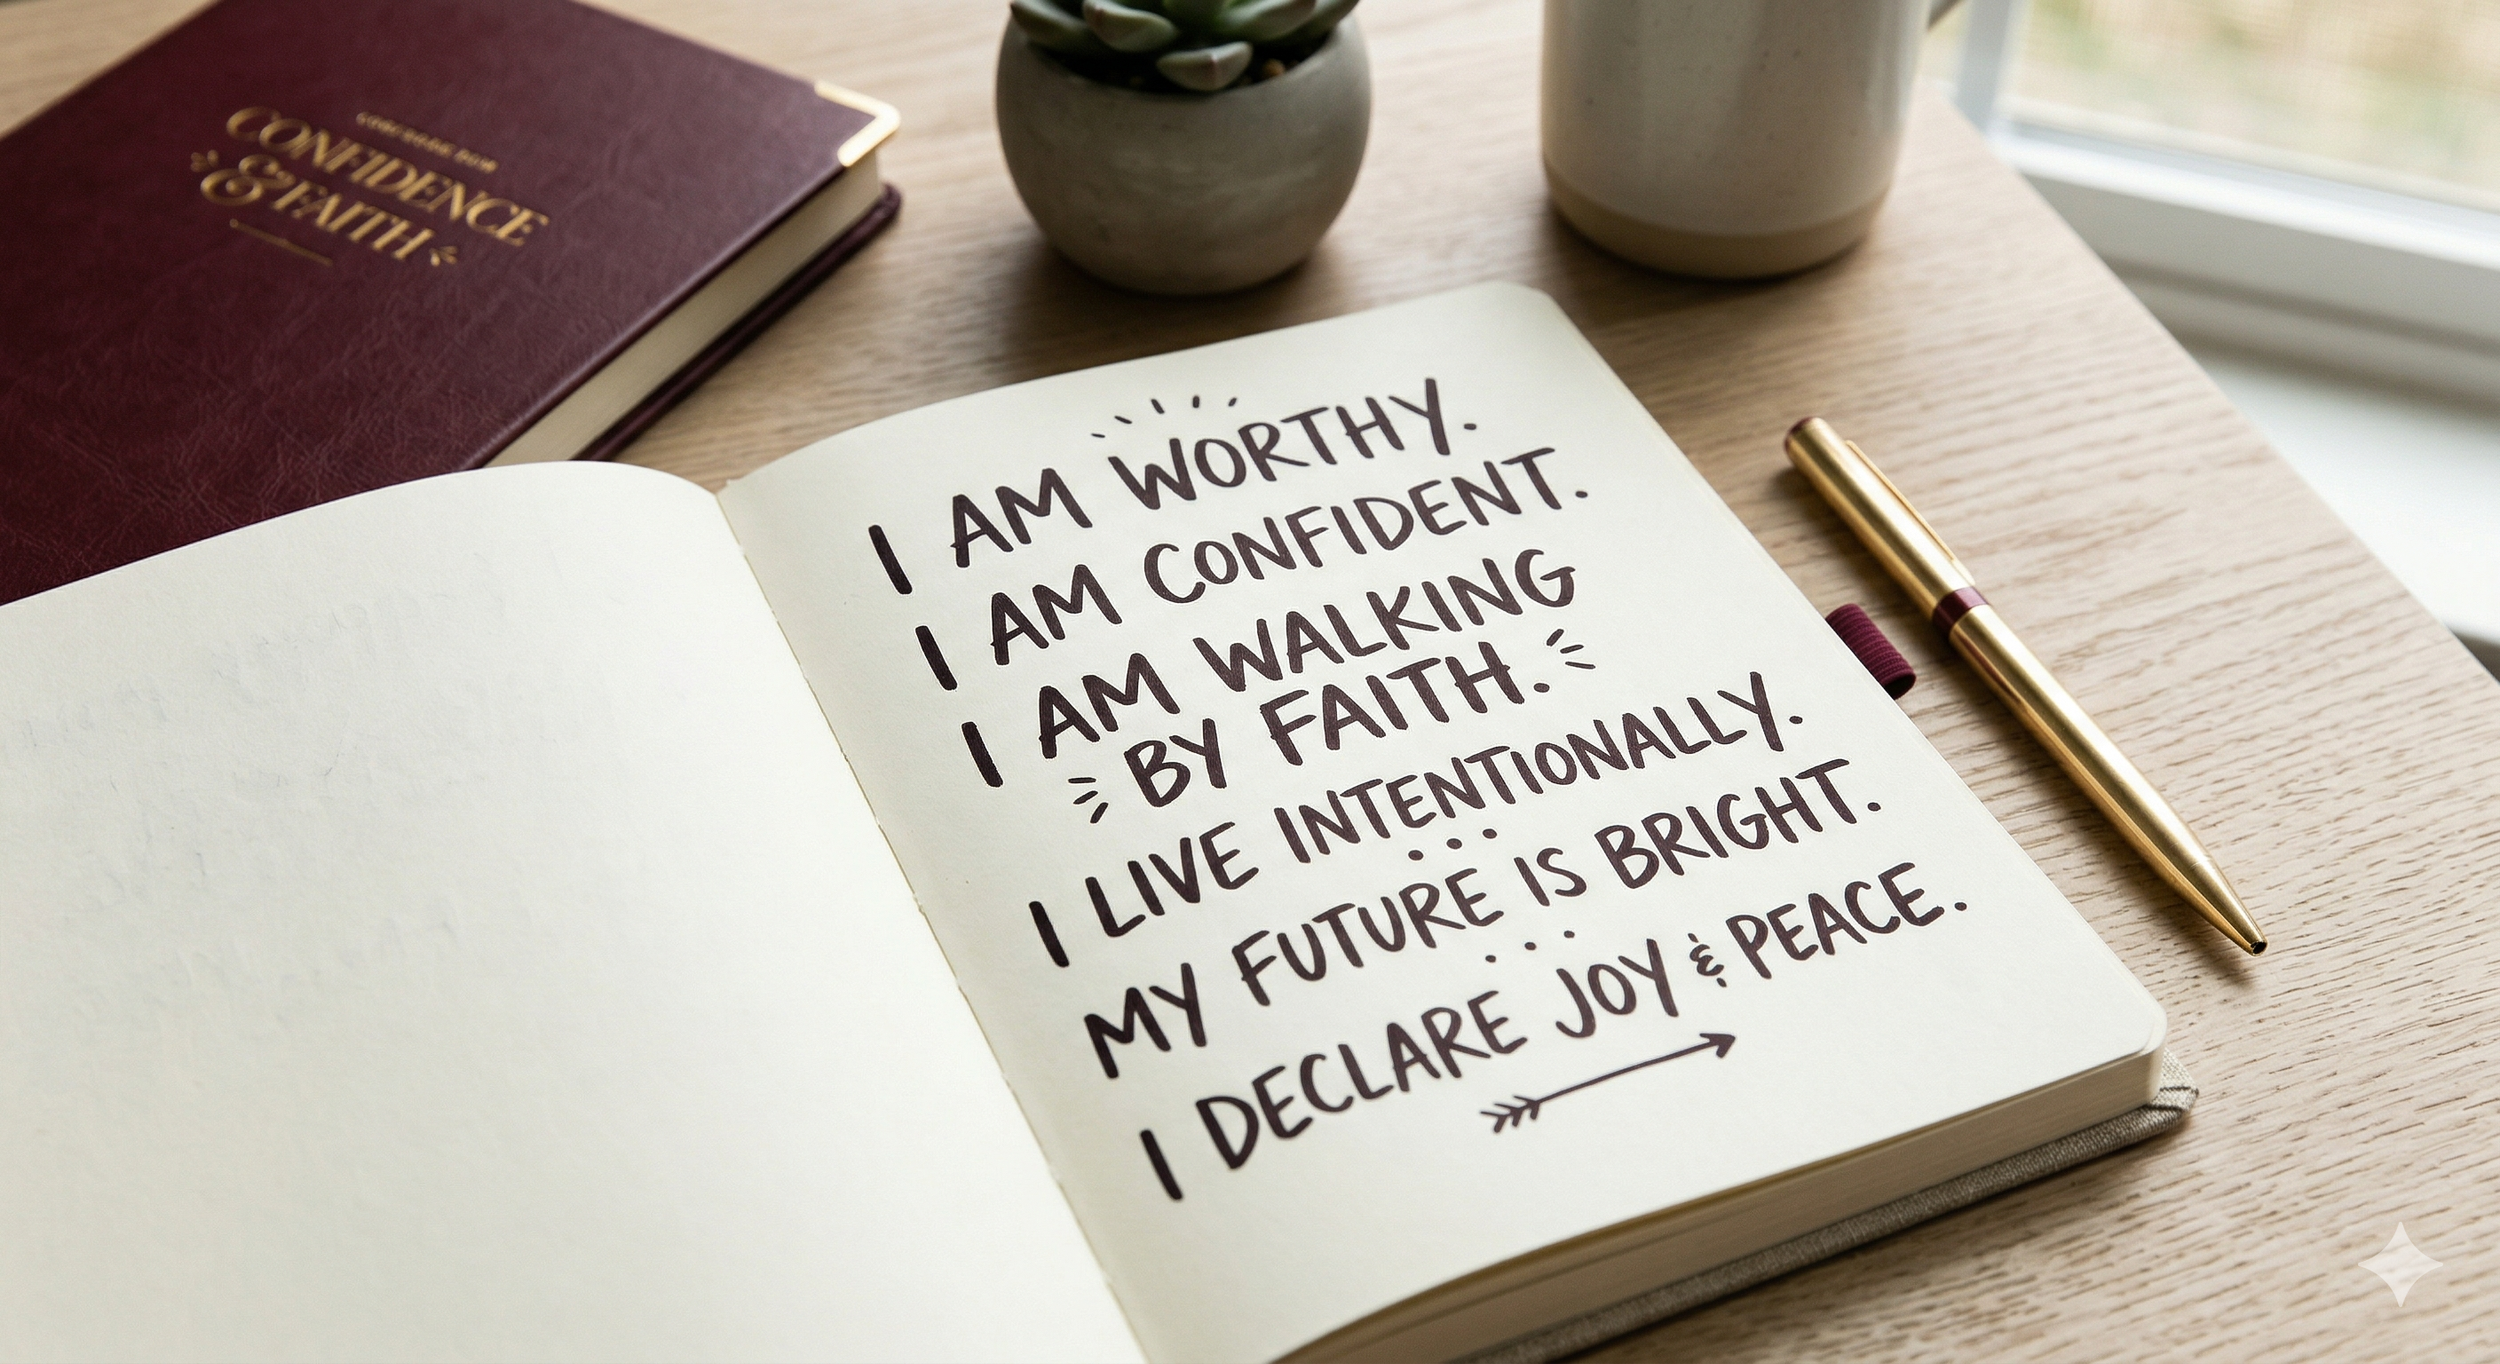 CONFIDENCE
& FAITH
I AM WORTHY.
I AM CONFIDENT.
I AM WALKING
BY FAITH.
I LIVE INTENTIONALLY.
MY FUTURE IS BRIGHT.
I DECLARE JOY & PEACE.